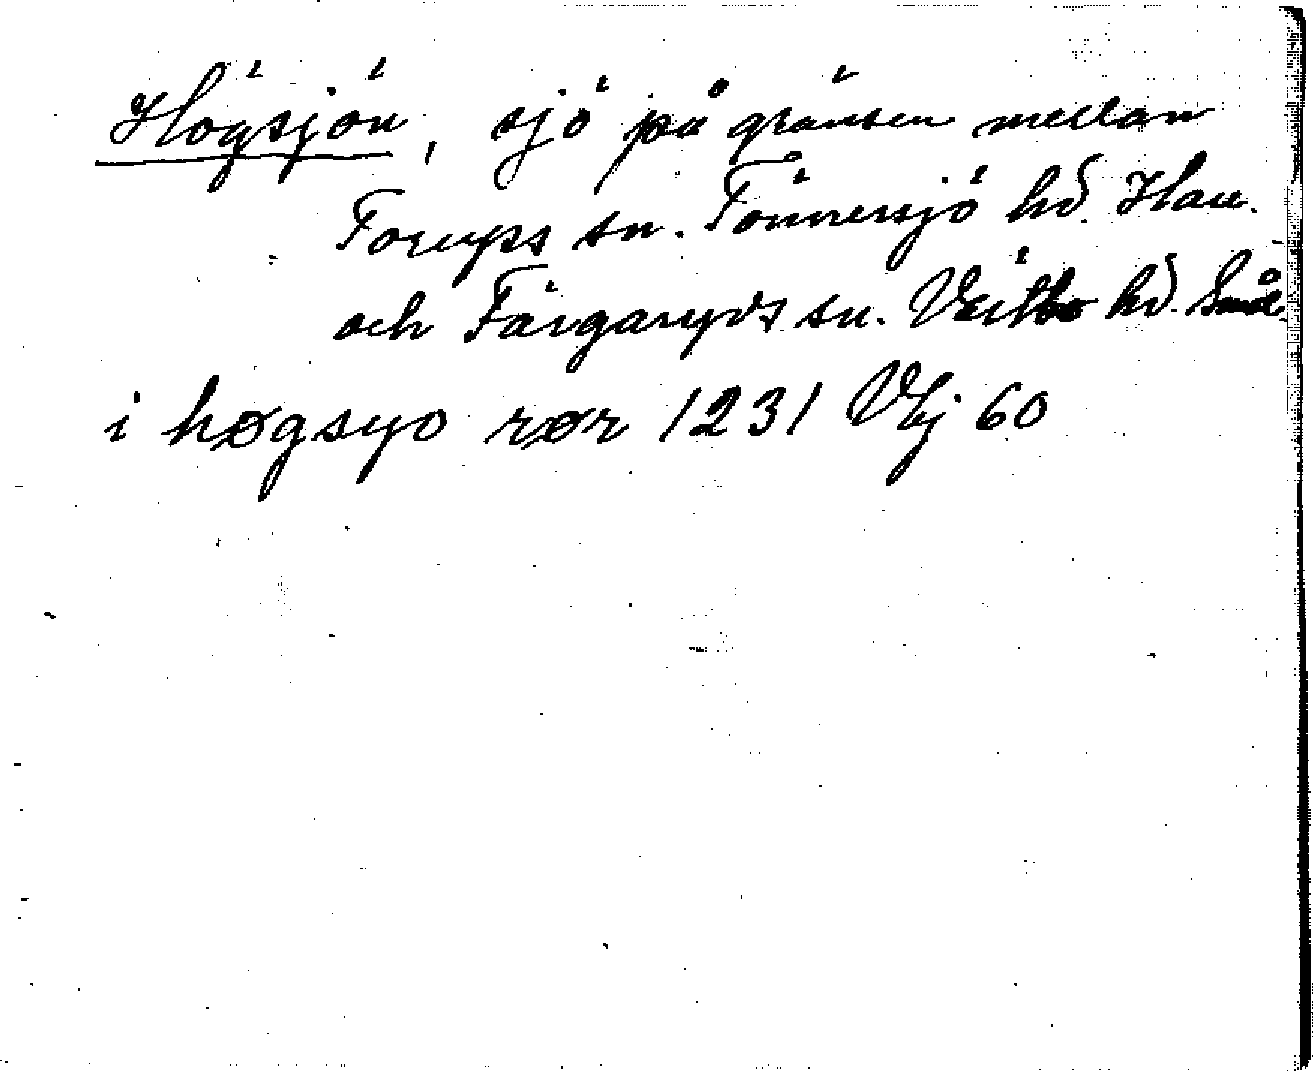 Högsjön, sjö på gränsen mellan
Torups sn. Tönnersjö hd. Hall.
och Färgaryds sn. Västbo hd. Smål.
i høgsyo rør 1231 Vhj 60